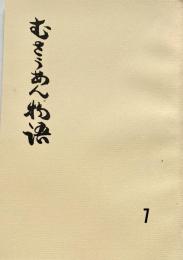 むさうあん物語
7